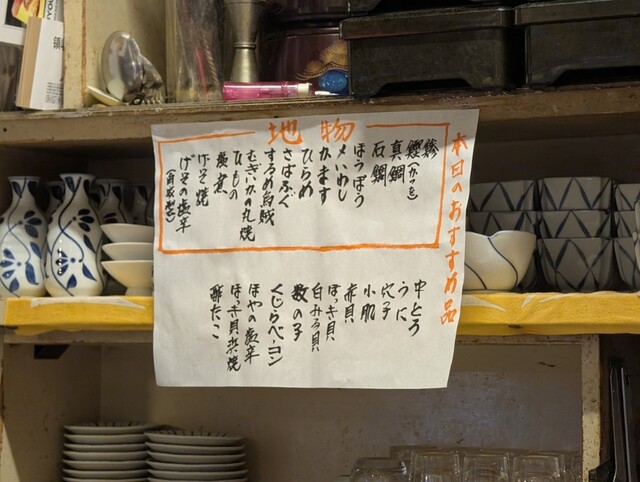 本日のおすすめ品
地物
鯵
鰹(かつを)
真鯛
石鯛
ほうぼう
メいわし
かます
ひらめ
さばふぐ
するめ烏賊
むぎいかの丸焼
ひもの
腹煮
げそ焼
げその塩辛
(自家製)
中とろ
うに
穴子
小肌
赤貝
ほっき貝
白みる貝
数の子
くじらベーコン
ほやの塩辛
ほっき貝浜焼
酢だこ